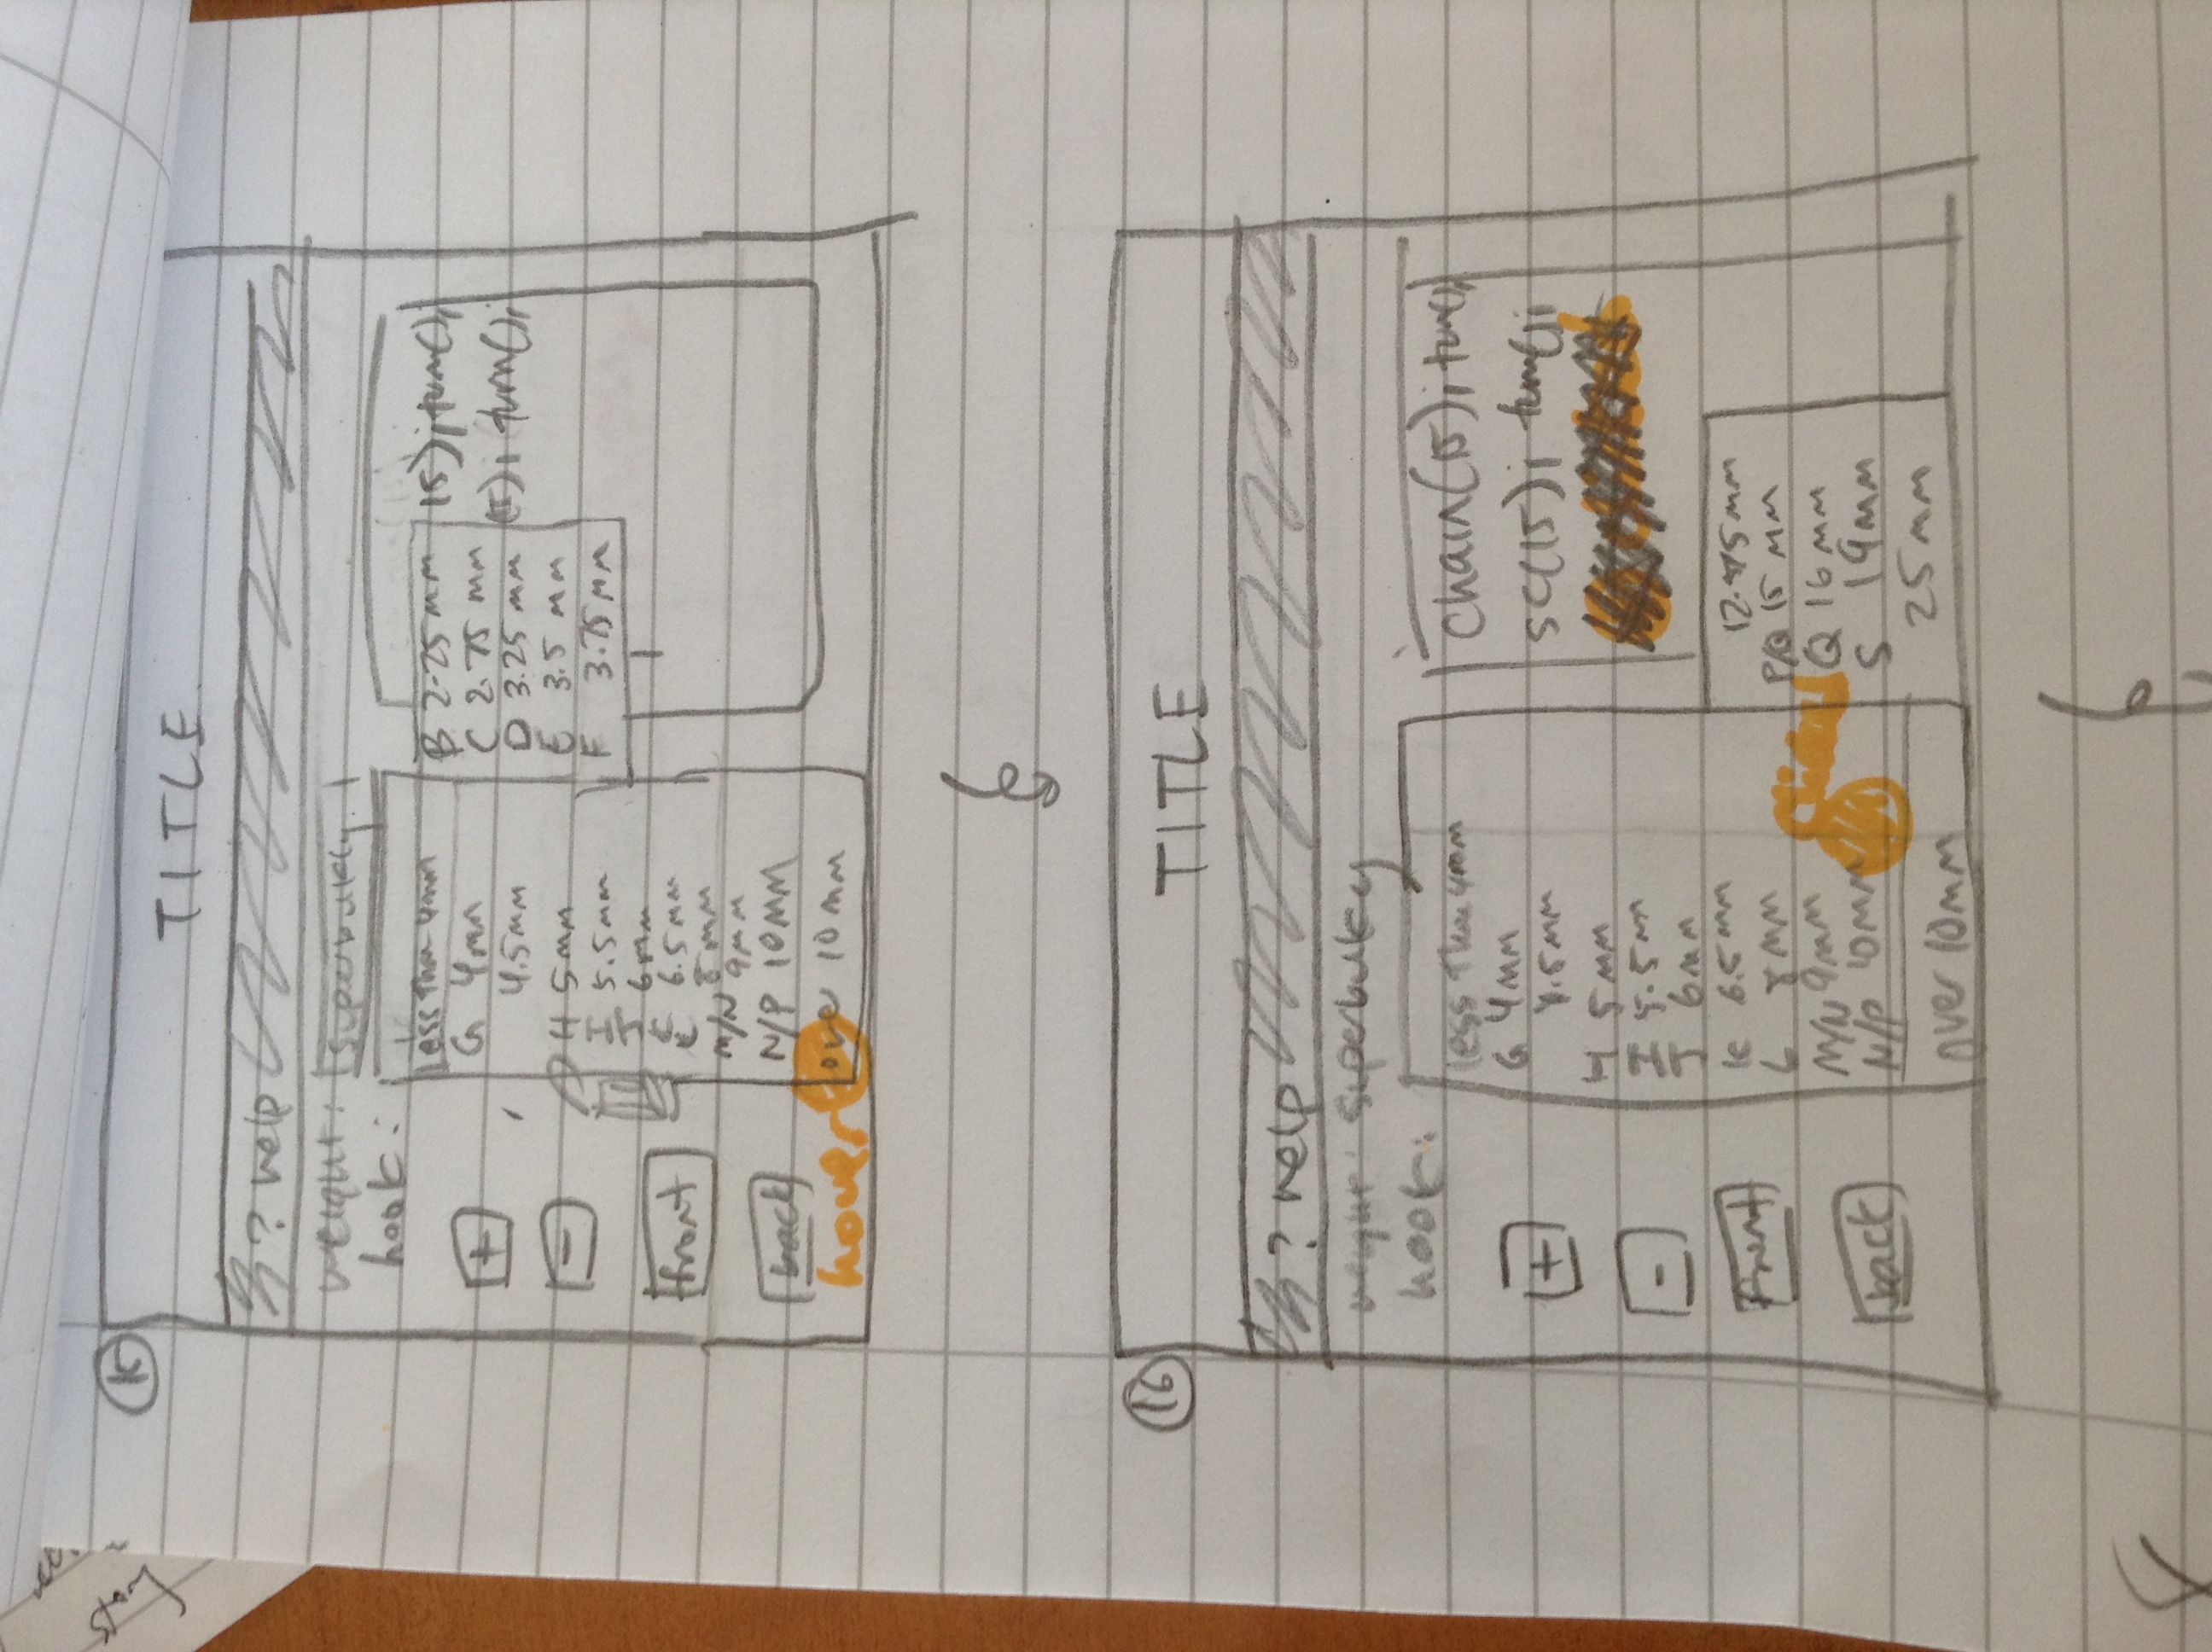 story
15
TITLE
? help
weight: superbulky
hook:
less than 4mm
G 4mm
4.5mm
H 5mm
I 5.5mm
J 6mm
K 6.5mm
L 8mm
M/N 9mm
N/P 10mm
over 10mm
B 2.25mm
C 2.75 mm
D 3.25 mm
E 3.5 mm
F 3.75mm
15); turn();
15); turn();
+
-
front
back
hover
16
TITLE
? help
weight: superbulky
hook:
less than 4mm
G 4mm
4.5mm
H 5mm
I 5.5m
J 6mm
K 6.5mm
L 8mm
M/N 9mm
N/P 10mm
over 10mm
chain(15); turn();
sc(15); turn();
P/Q 15 mm
Q 16mm
S 19mm
25mm
+
-
front
back